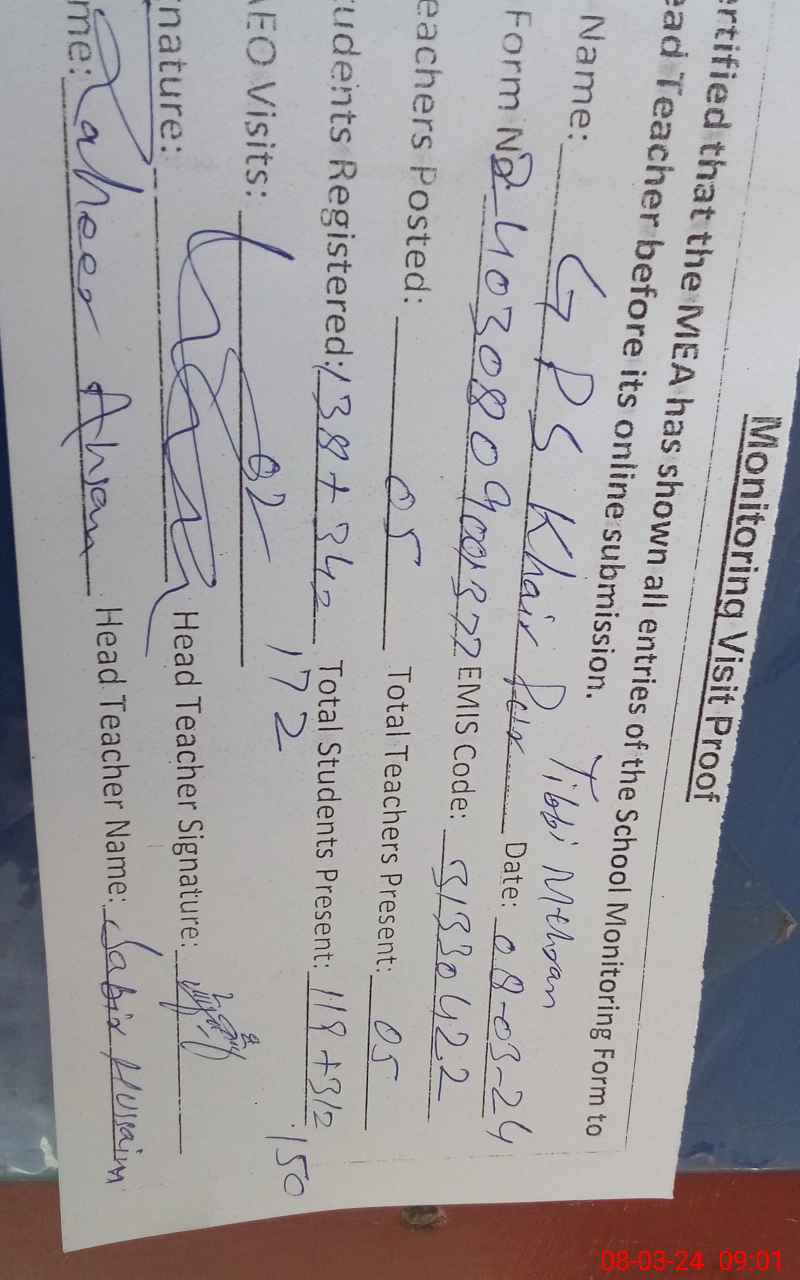 Monitoring Visit Proof
ertified that the MEA has shown all entries of the School Monitoring Form to
ead Teacher before its online submission.
Name: GPS Khair Pur Tibbi Mehran Date: 08-03-24
Form No 24030809001377 EMIS Code: 31330422
eachers Posted: 05 Total Teachers Present: 05
udents Registered: 138+34= 172 Total Students Present: 119+31= 150
AEO Visits: 02
nature: Head Teacher Signature:
me: Zaheer Ahsan Head Teacher Name: Sabir Hussain
08-03-24 09:01